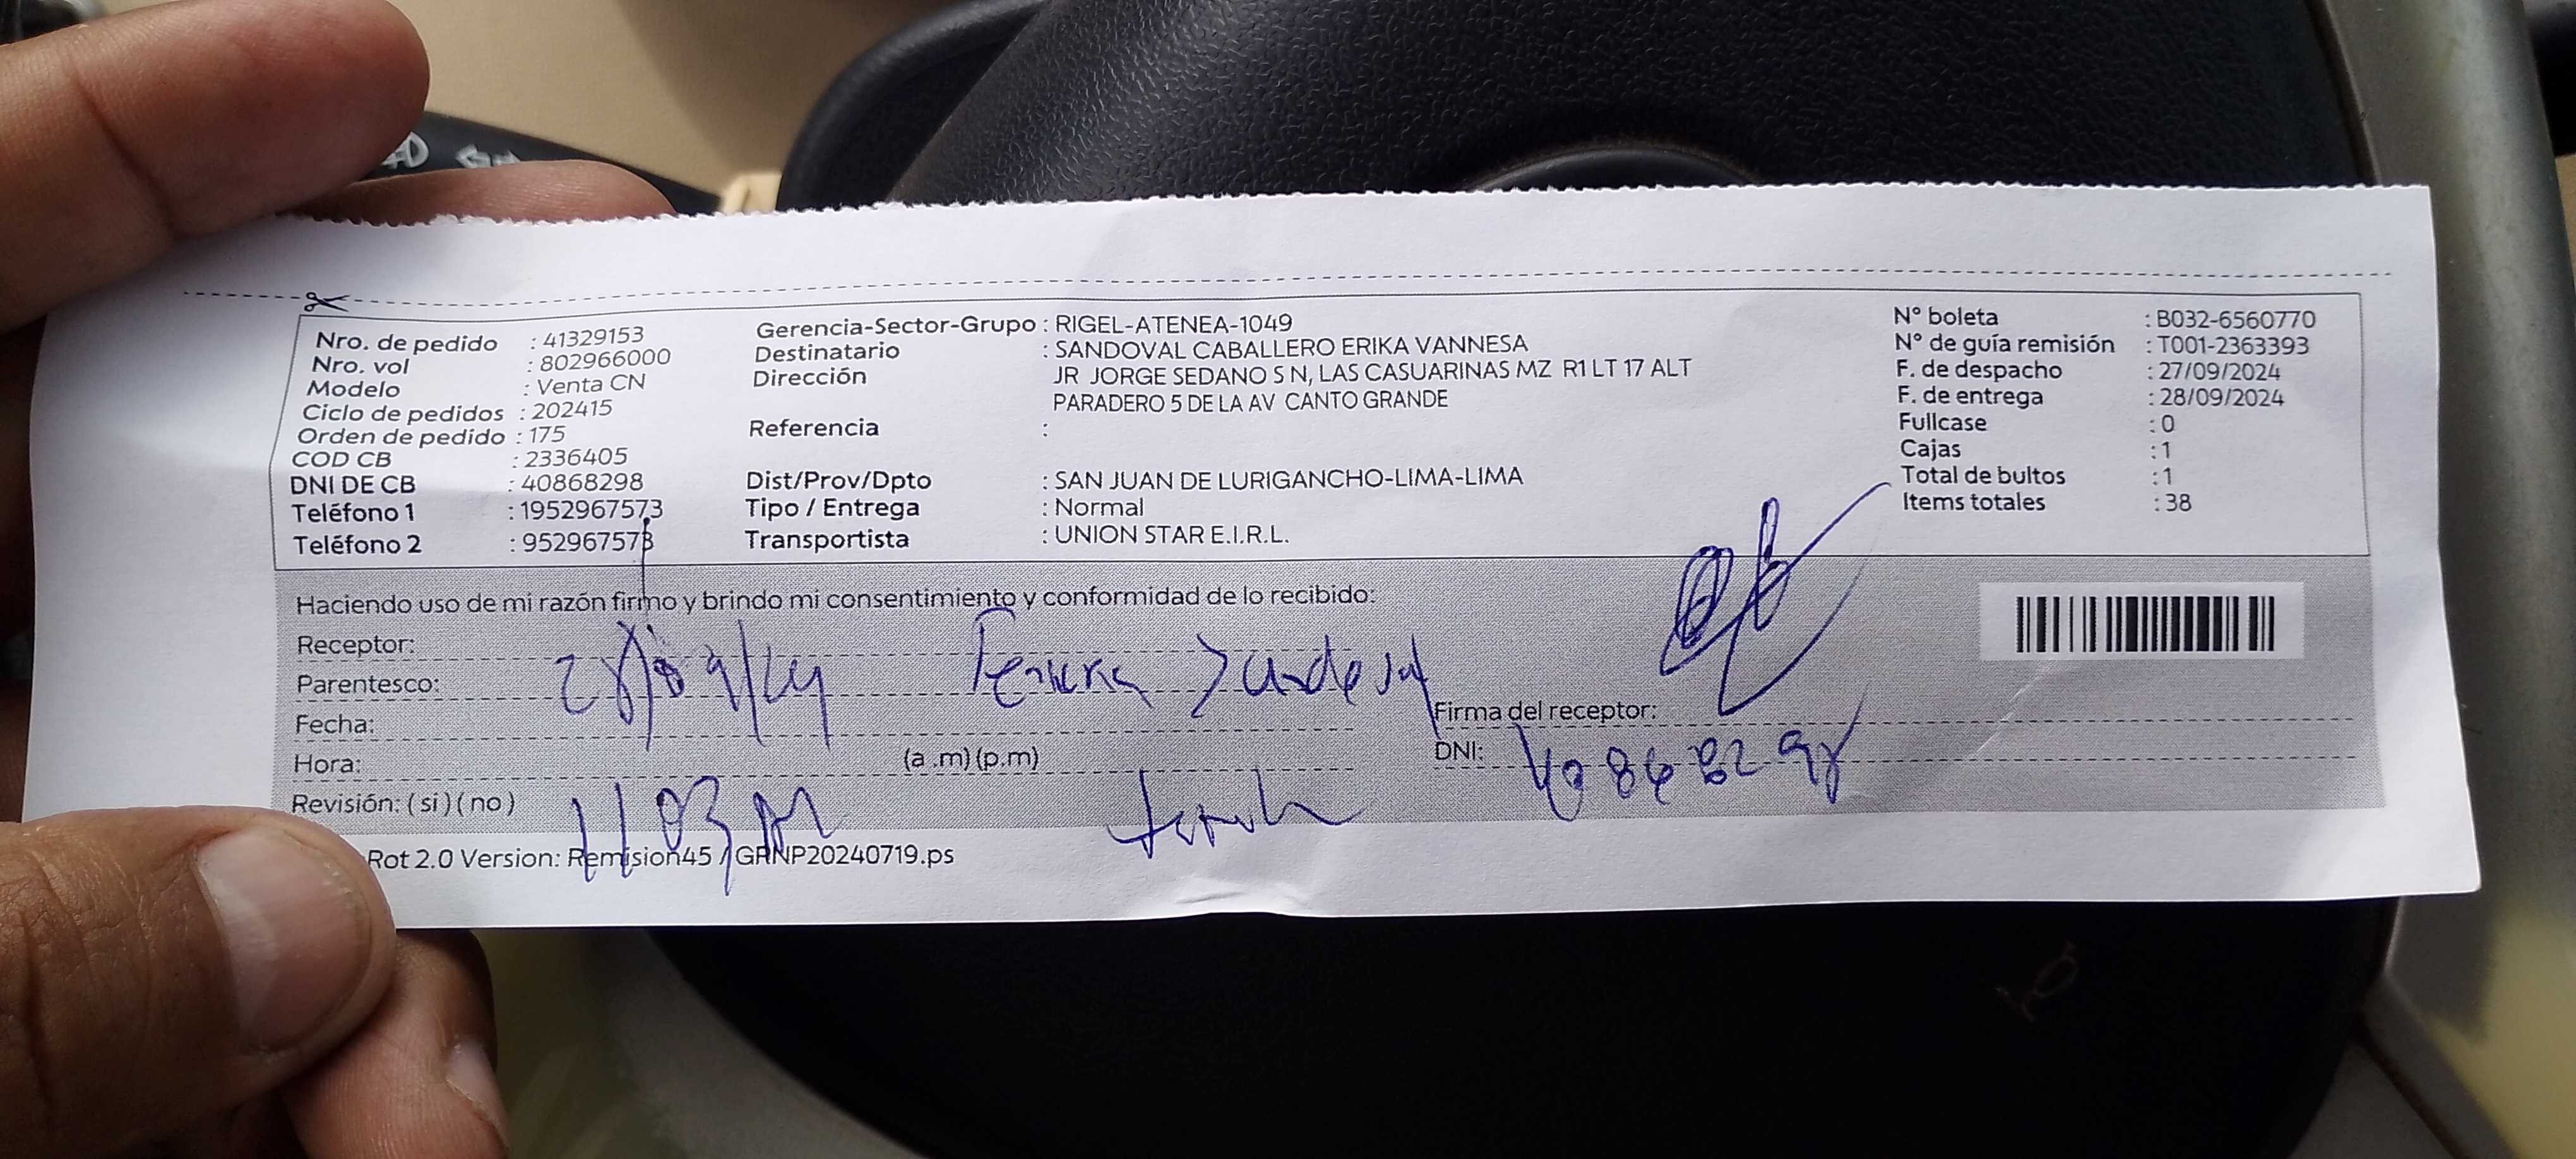 Nro. de pedido : 41329153
Nro. vol : 802966000
Modelo : Venta CN
Ciclo de pedidos : 202415
Orden de pedido : 175
COD CB : 2336405
DNI DE CB : 40868298
Teléfono 1 : 1952967573
Teléfono 2 : 952967573
Gerencia-Sector-Grupo : RIGEL-ATENEA-1049
Destinatario : SANDOVAL CABALLERO ERIKA VANNESA
Dirección JR JORGE SEDANO S N, LAS CASUARINAS MZ R1 LT 17 ALT
PARADERO 5 DE LA AV CANTO GRANDE
Referencia :
Dist/Prov/Dpto : SAN JUAN DE LURIGANCHO-LIMA-LIMA
Tipo / Entrega : Normal
Transportista : UNION STAR E.I.R.L.
N° boleta : B032-6560770
N° de guía remisión : T001-2363393
F. de despacho : 27/09/2024
F. de entrega : 28/09/2024
Fullcase : 0
Cajas : 1
Total de bultos : 1
Items totales : 38
Haciendo uso de mi razón firmo y brindo mi consentimiento y conformidad de lo recibido:
Receptor:
Parentesco: 28/09/24 Sandoval
Fecha:
Firma del receptor:
Hora: (a .m) (p.m)
DNI: 40868298
Revisión: ( si ) ( no )
1103
Rot 2.0 Version: Remision45 / GRNP20240719.ps